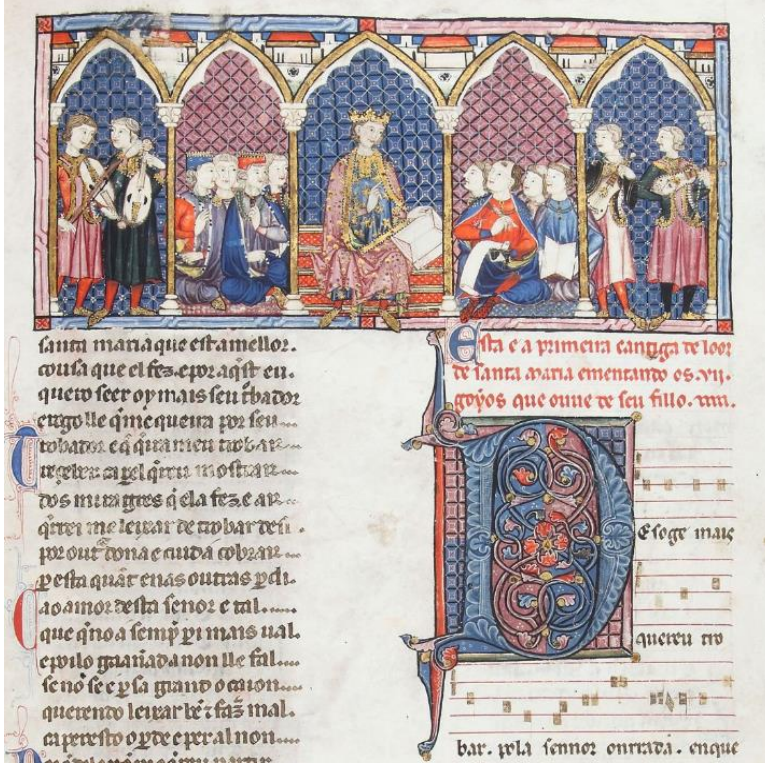 santa maria que est amellor.
cousa que el fez. epor aqst eu.
quero seer oy mais seu t̃bador
erogo lle q̃ me queira por seu
trobador e q̃ q̃ira meu trobar
reçeber ca per el q̃rreu mostrar
dos miragres q̃ ela fez e ar
q̃rrei me leixar de trobar des i
por out̃ dona e cuid a cobrar
per esta quant enas outras perdi.
ca o amor desta señor e tal
que q̃no a semp̃ per i mais ual.
e poilo gaañada non lle fal
se nõ se e per sa grand ocaion
querendo leixar bẽ ⁊ faz̃ mal.
ca per esto o perde e per al non
Esta e a primeira cantiga de loor
de santa maria ementando os. vij.
goyos que ouue de seu fillo.
Desoge mais
quereu tro
bar. pola sennor onrrada. enque